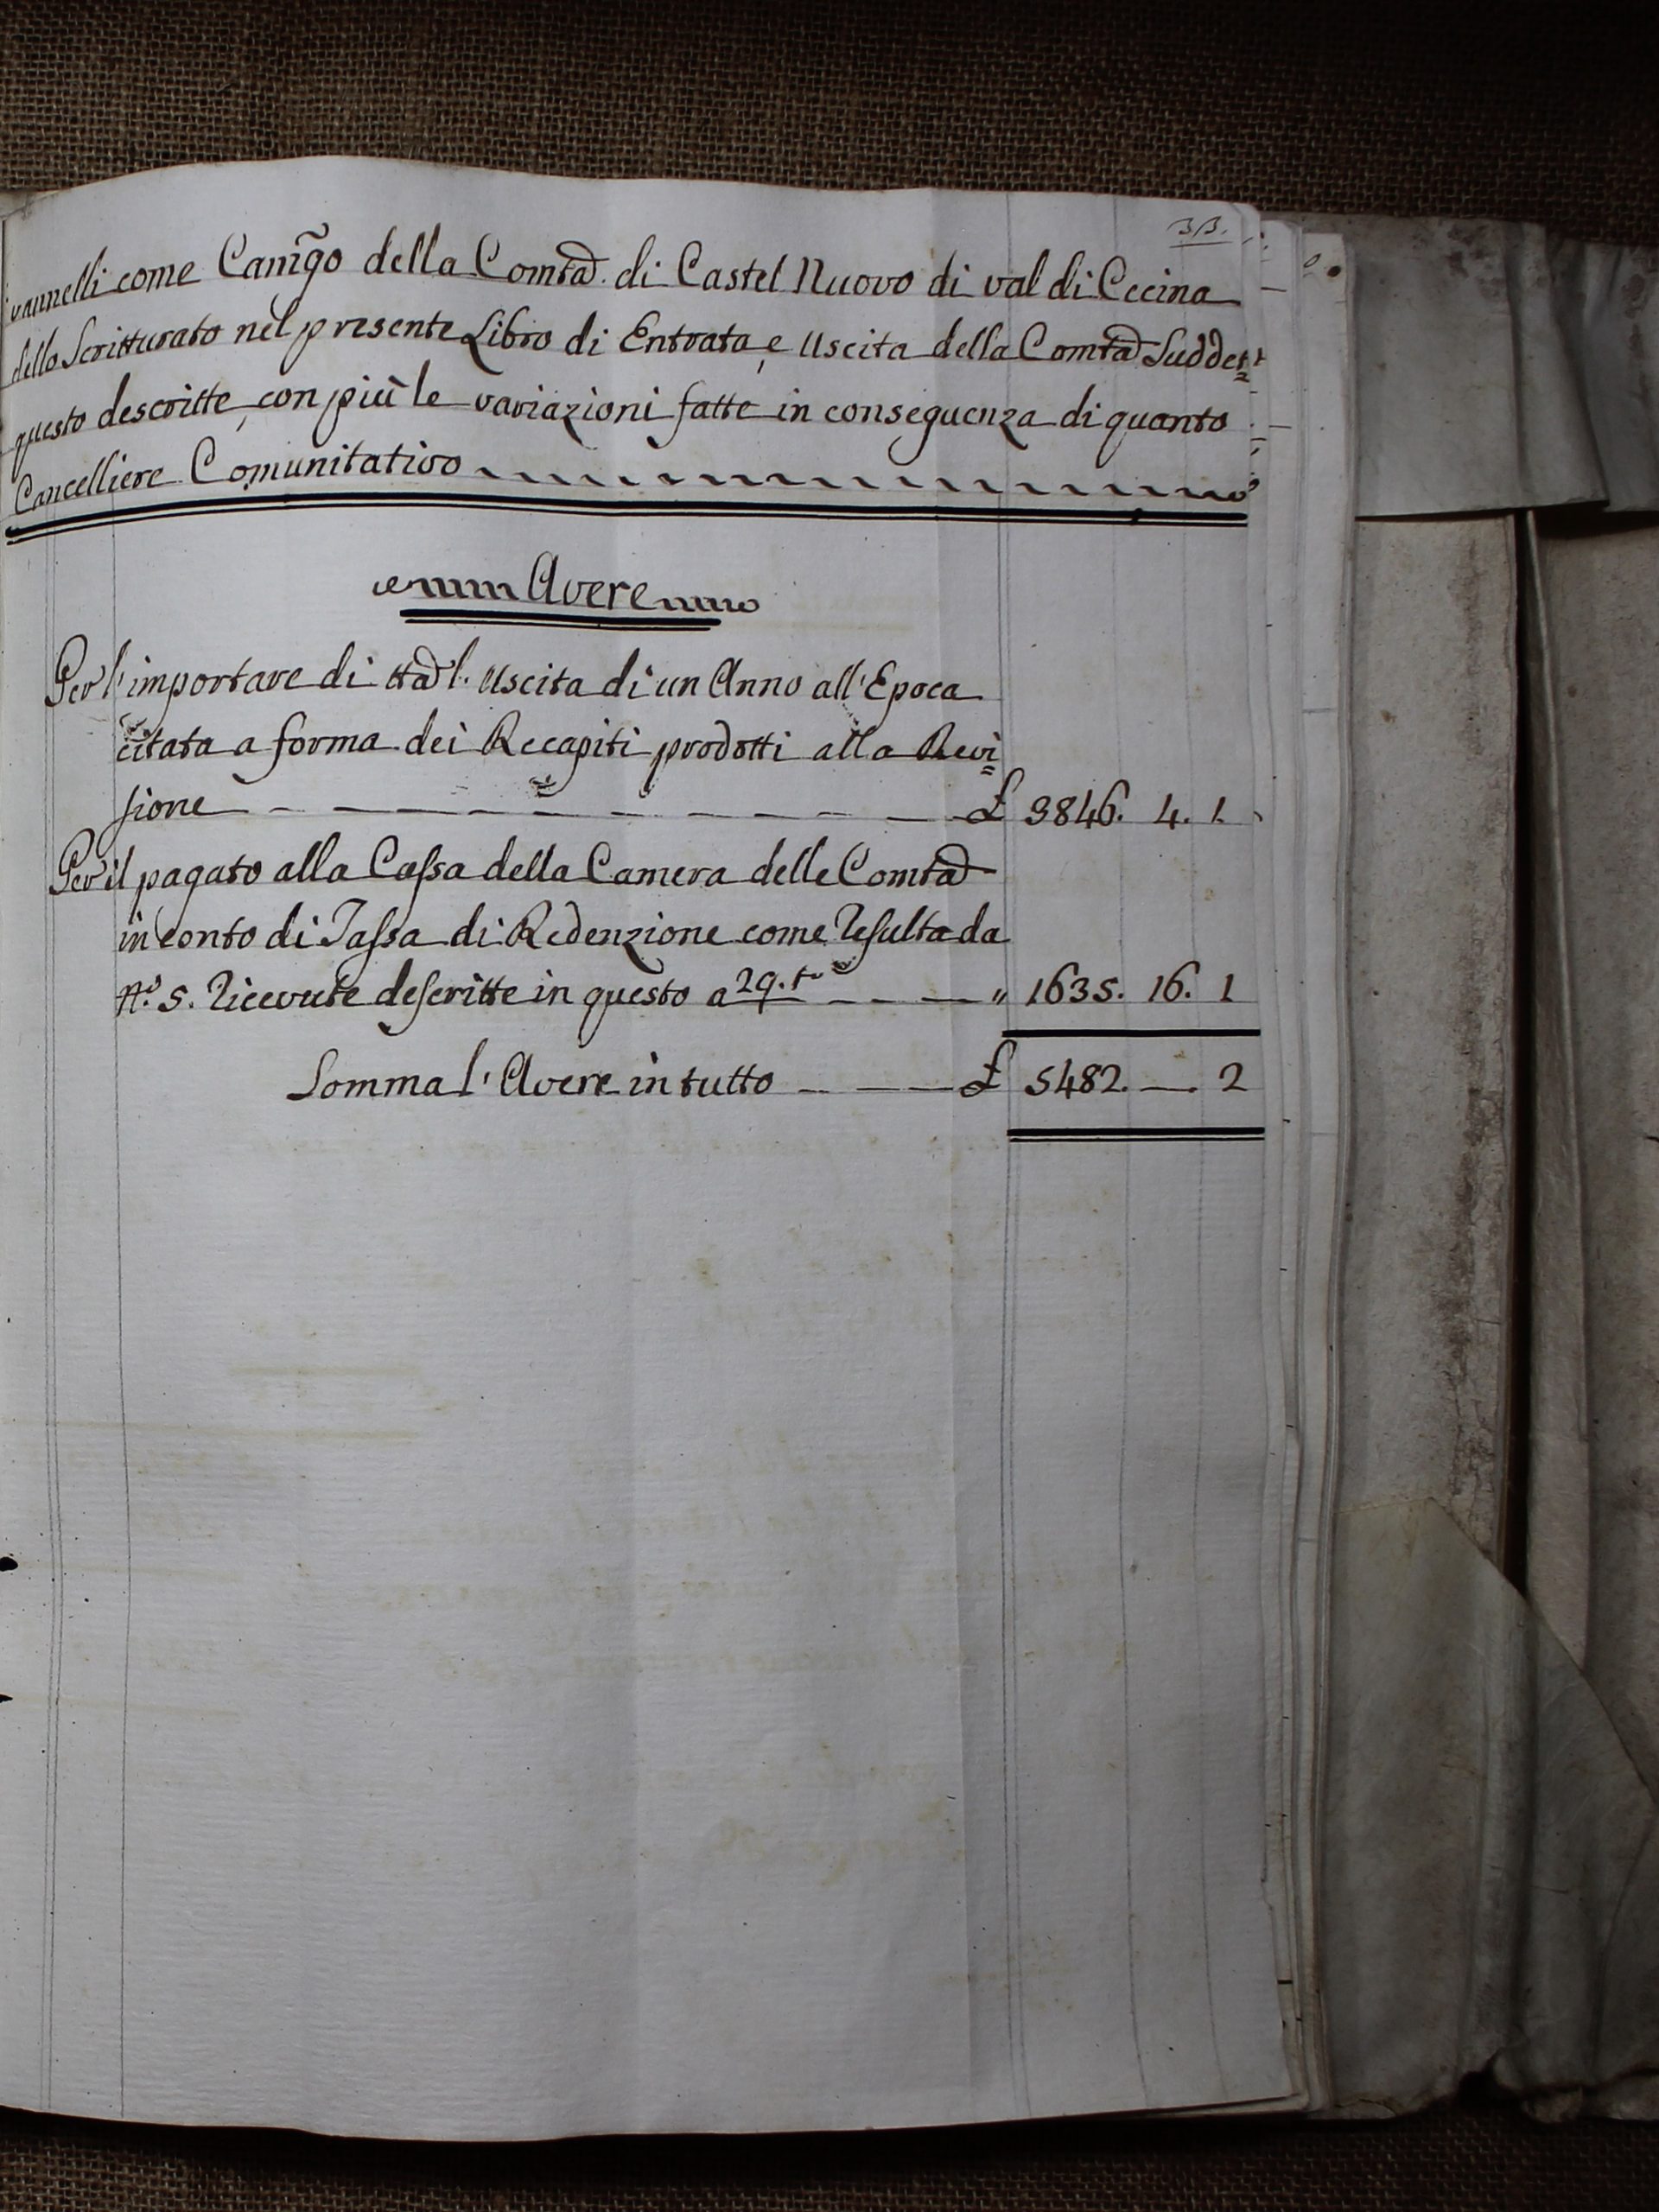 33.
vannelli come Camgo della Comtad. di Castel Nuovo di val di Cecina
dello Scritturato nel presente Libro di Entrata, e Uscita della Comtad Suddet=
questo descritte, con più le variazioni fatte in conseguenza di quanto
Cancelliere Comunitativo
Avere
Per l'importare di ttad l'Uscita di un Anno all'Epoca
citata a forma dei Recapiti prodotti alla Revi=
sione £ 3846. 4. 1.
Per il pagato alla Cassa della Camera delle Comtad
in conto di Tassa di Redenzione come resulta da
N.º 5. ricevute descritte in questo a 29.t " 1635. 16. 1
Somma l'Avere in tutto £ 5482. —. 2